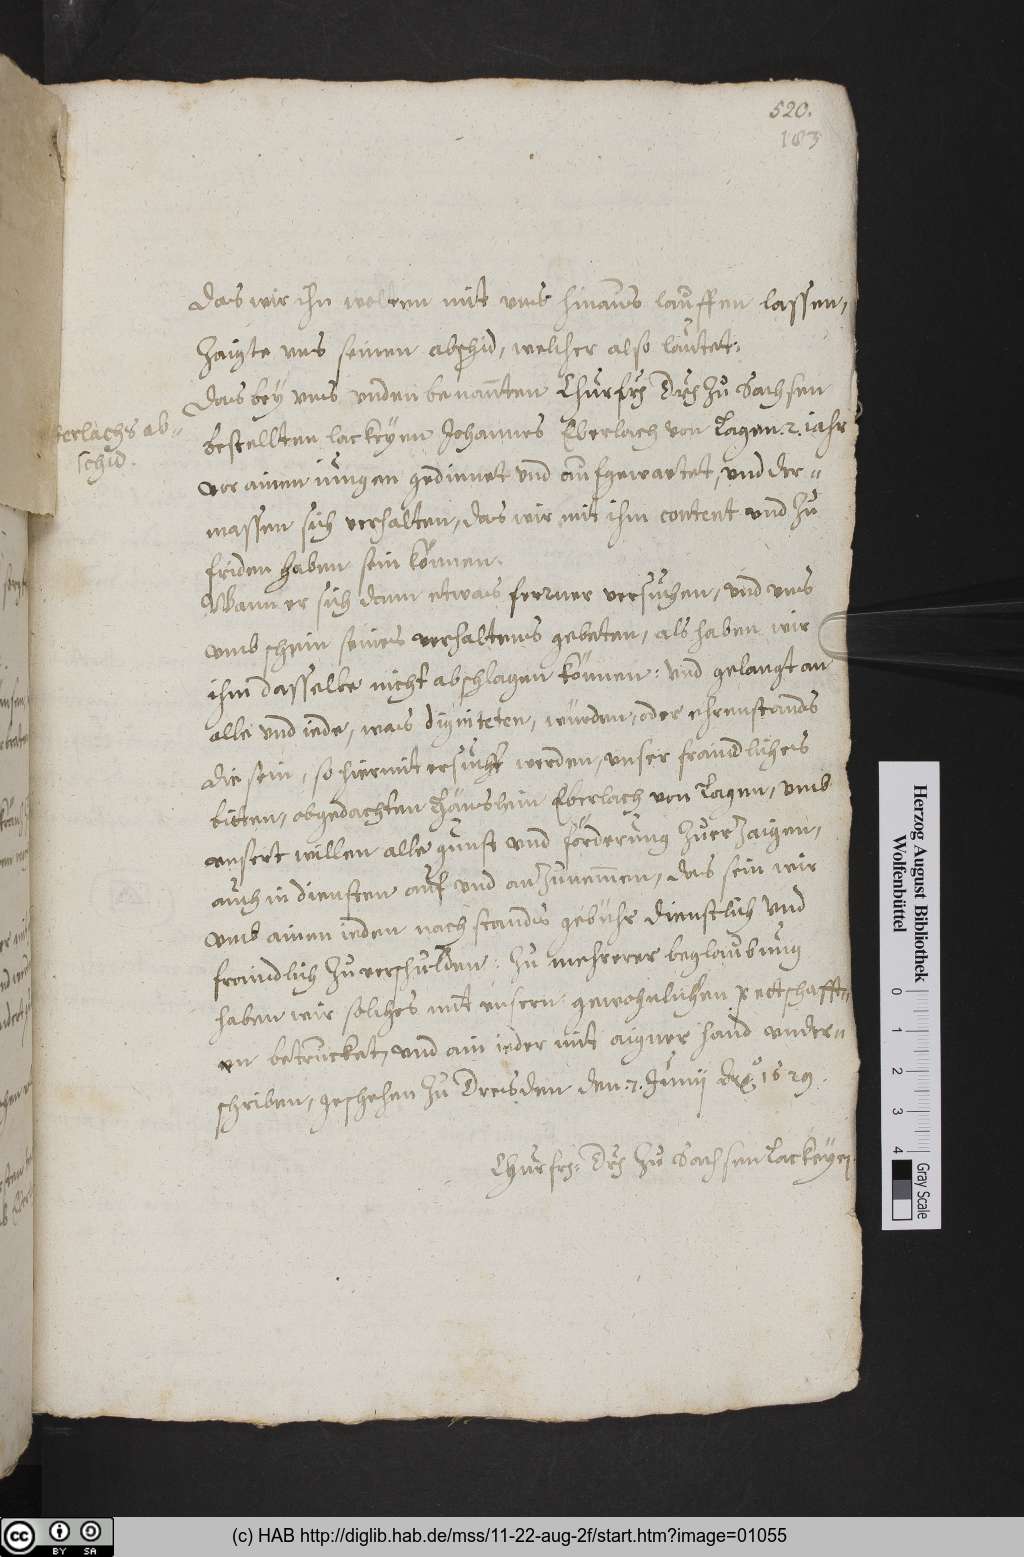 520.
183
das wir ihn wolten mit uns hinaus lauffen lassen,
zaigte uns seinen abschid, welcher also lautet:
Das bey uns unden benanten Churfrs: Drs: zu Sachsen
bestellten lackeyen Johannes Eberlach von Lagen .2. iahr
vor ainen iungen gedienet und aufgewartet, und der=
massen sich verhalten, das wir mit ihm content und zu
friden haben sein können.
Wann er sich dann etwas ferner versuchen, und uns
umb schein seines verhaltens gebeten, als haben wir
ihm dasselbe nicht abschlagen können: und gelangt an
alle und iede, was digniteten, würden, oder ehrenstands
die sein, so hiermit ersucht werden, unser fraindliches
bitten, obgedachten Hänslein Eberlach von Lagen, umb
unsert willen alle gunst und förderung zu erzaigen,
auch in diensten auf und anzunemen, das sein wir
umb ainen ieden nach stands gebühr dienstlich und
fraindlich zu verschulden: zu mehrerer beglaubung
haben wir solches mit unsern gewohnlichen pettschafft=
en betrucket, und ain ieder mit aigner hand under=
schriben, geschehen zu Dresden den 7. Junij Ao: 1629.
Churfrs: Drs: zu Sachsen Lackeyen
erlachs ab=
schid.
Herzog August Bibliothek
Wolfenbüttel
0 1 2 3 4
Gray Scale
cc BY SA
(c) HAB http://diglib.hab.de/mss/11-22-aug-2f/start.htm?image=01055